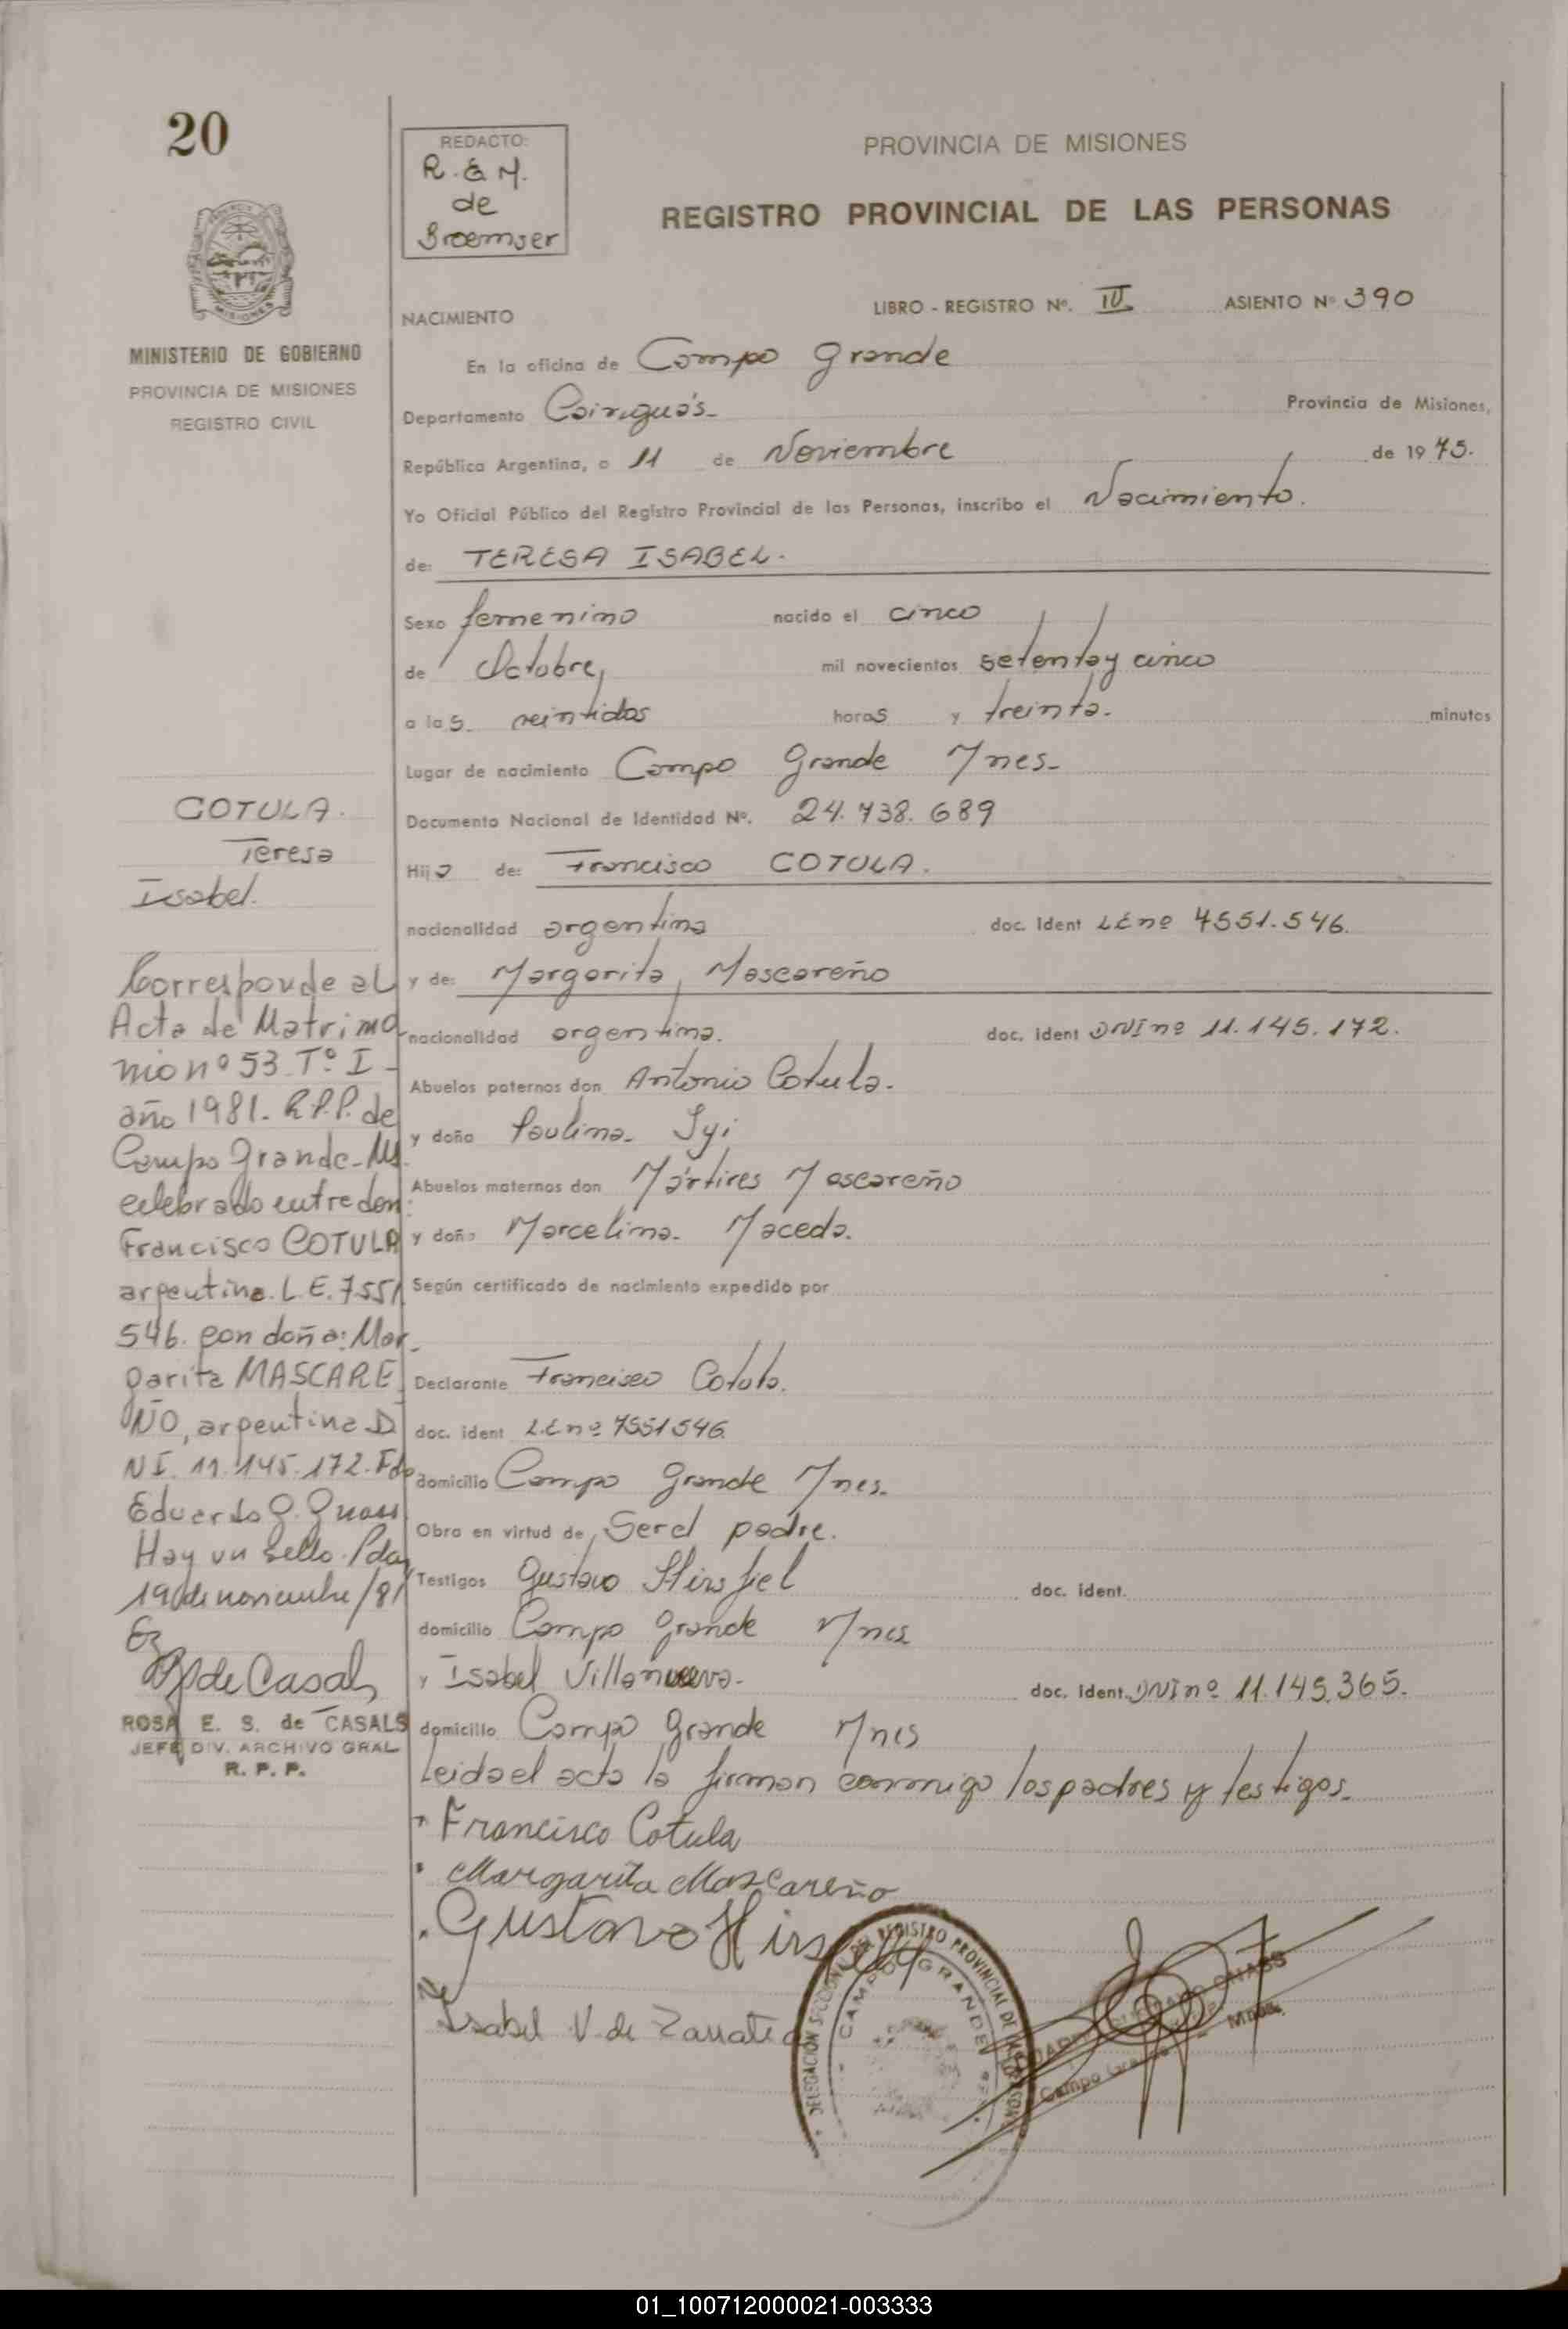 20
MINISTERIO DE GOBIERNO
PROVINCIA DE MISIONES
REGISTRO CIVIL
REDACTO:
R. E M.
de
Broemser
PROVINCIA DE MISIONES
REGISTRO PROVINCIAL DE LAS PERSONAS
LIBRO - REGISTRO Nº. III ASIENTO Nº 390
NACIMIENTO
En la oficina de Campo Grande
Departamento Cainguás- Provincia de Misiones,
República Argentina, a 11 de Noviembre de 1975.
Yo Oficial Público del Registro Provincial de las Personas, inscribo el Nacimiento.
de: TERESA ISABEL.
Sexo femenino nacido el cinco
de Octubre, mil novecientos setenta y cinco
a las veintidos horas y treinta. minutos
Lugar de nacimiento Campo Grande Mnes-
Documento Nacional de Identidad Nº. 24.738.689
Hija de: Francisco COTULA.
nacionalidad argentina doc. ident L.E nº 7551.546.
y de: Margarita Mascareño
nacionalidad argentina. doc. ident DNI nº 11.145.172.
Abuelos paternos don Antonio Cotula.
y doña Paulina Syi
Abuelos maternos don Mártires Mascareño
y doña Marcelina Maceda.
Según certificado de nacimiento expedido por
Declarante Francisco Cotula.
doc. ident L.E nº 7551546
domicilio Campo Grande Mnes.
Obra en virtud de Ser el padre.
Testigos Gustavo Hirsfiel doc. ident.
domicilio Campo Grande Mnes
y Isabel Villanueva. doc. ident. DNI nº 11.145.365.
domicilio Campo Grande Mnes
Leida el acta la firman conmigo los padres y testigos.
Francisco Cotula
Margarita Mascareño
Gustavo
Isabel V. de Zarrate
DELEGACIÓN SECCIONAL DEL REGISTRO PROVINCIAL DE LAS PERSONAS
CAMPO GRANDE
Campo Grande - Mnes.
COTULA.
Teresa
Isabel.
Corresponde al
Acta de Matrimo
nio nº 53 Tº I-
año 1981. R.P.P. de
Campo Grande-Ms.
celebrado entre don:
Francisco COTULA
argentina. L.E. 7551
546. con doña: Mar-
garita MASCARE
ÑO, argentina D
NI. 11.145.172. Fdo
Eduardo G. Gnass
Hay un sello. Pdas
19 de noviembre/81
de Casals
ROSA E. S. de CASALS
JEFE DIV. ARCHIVO GRAL
R. P. P.
01_100712000021-003333